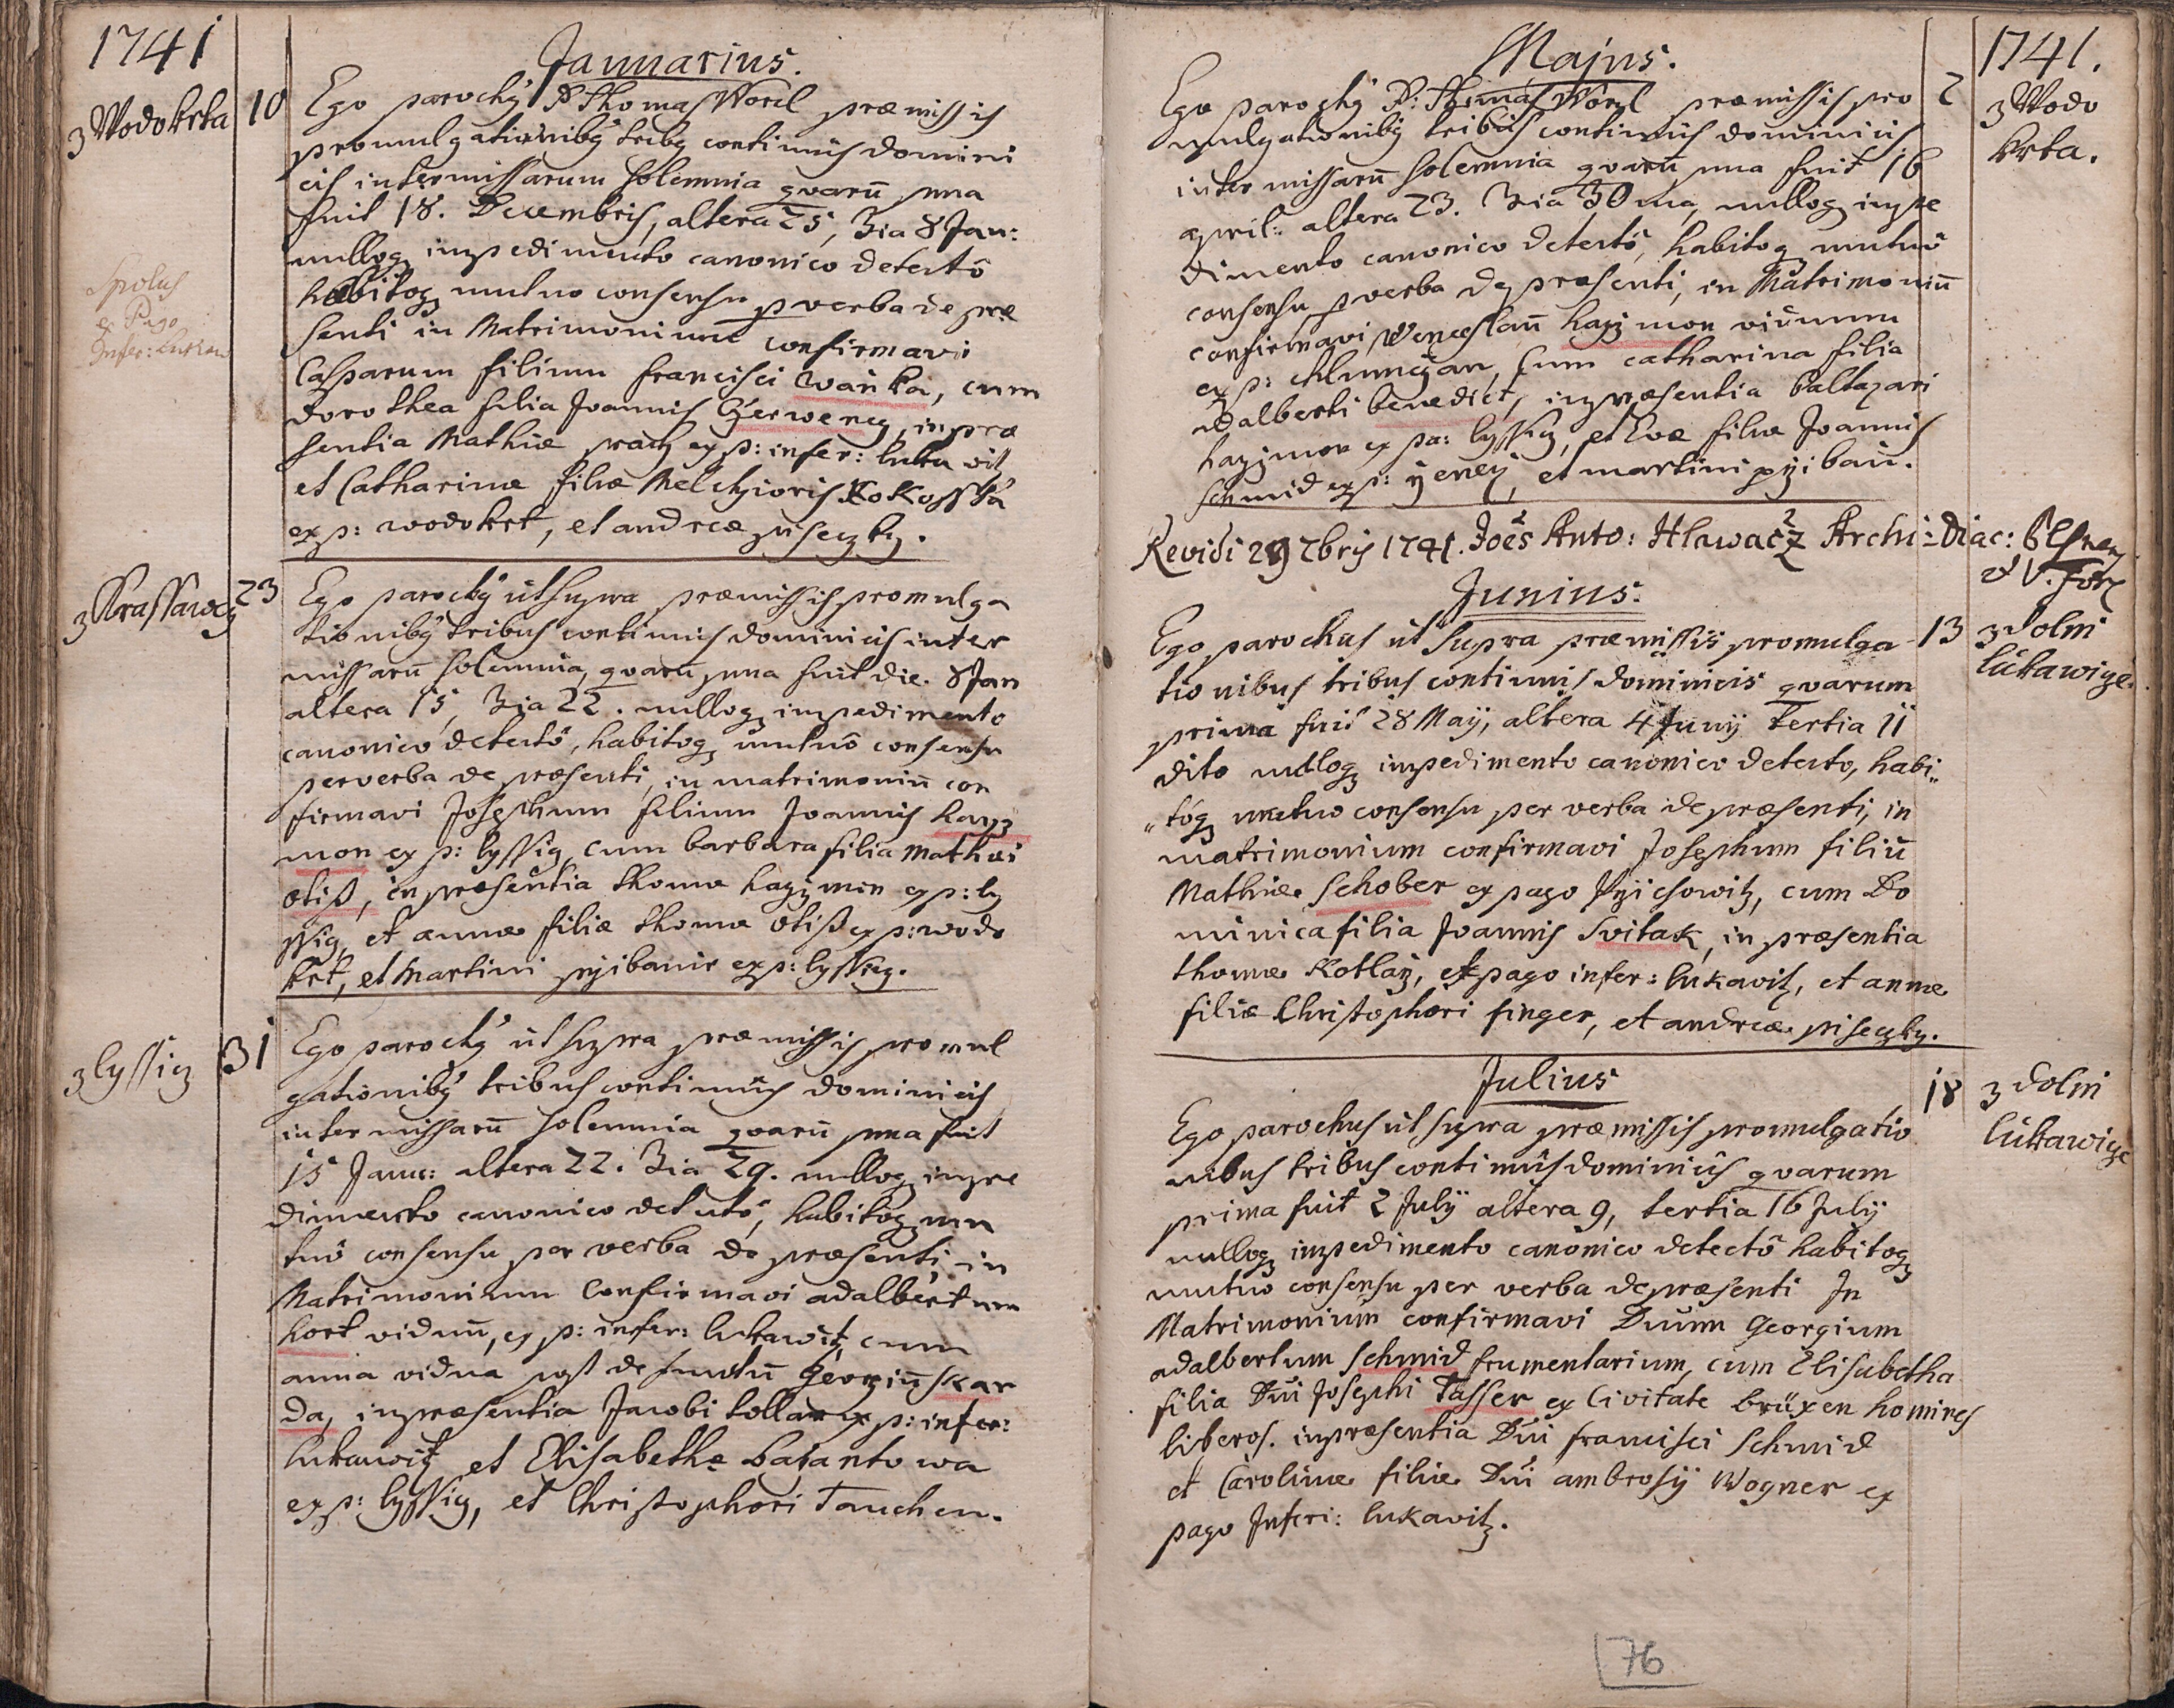 1741
Januarius.
z Wodokrta
10
Ego parochy P Thomas Wörl præmissis
promulgationiby triby continuis domini
cis inter missarum solemnia qvarū pma
fuit 18. Decembris, altera 25, 3ia 8 Jan:
nulloq impedimento canonico detectô
habitoq mutuo consensu p verba de præ
senti in Matrimonium confirmavi
Casparum filium Francisci Waṅka, cum
Dorothea filia Joannis Czerweney, in præ
sentia Mathiæ ex p: infer: lukawitz
et Catharinæ filiæ Melchioris Kokosska
ex p: wodokrt, et andreæ piseczky.
Spolus
e Pago
Infer: Lukaw
z Krassawcz
23
Ego parochy ut supra præmissis promulga
tioniby tribus continuis dominicis inter
missarū solemnia, qvarū pma fuit die. 8 Jan
altera 15, 3ia 22. nulloq impedimento
canonico detectô, habitoq mutuô consensu
per verba de præsenti, in matrimoniū con
firmavi Josephum filium Joannis hayz
mon ex p: lyssig, cum barbara filia Mathæi
otiß, in præsentia thomæ hayzmon ex p: ly
ssig, et annæ filiæ thomæ otiß ex p: wodo
krt, et Martini ex p: lysskeg.
z lyssicz
31
Ego parochy ut supra præmissis promul
gationiby tribus continuis dominicis
inter missarū solemnia qvarū pma fuit
15 Janu: altera 22. 3ia 29. nulloq impe
dimento canonico detectô, habitoq mu
tuô consensu per verba de præsenti in
Matrimonium Confirmavi adalbertum
hort viduū, ex p: infer: lukawitz cum
anna vidua post defunctū Georgiū skar
da, in præsentia Jacobi kollar ex p: infer:
lukawitz et Elisabethæ
ex p: lyssig, et Christophori Tauchen.
1741.
Majus.
2
z Wodo
krta.
Ego parochy P: Thomas Wörl præmissis pro
mulgationiby tribus continuis dominicis
inter missarū solemnia qvarū pma fuit 16
april: altera 23. 3ia 30ma, nulloq impe
dimento canonico detectô, habitoq mutuô
consensu p verba de præsenti, in Matrimoniū
confirmavi Wenceslaū hayzmon viduum
ex p: chlumczan, cum catharina filia
adalberti benedict, in præsentia baltazari
hayzmon ex pa: lyssig, et Evæ filiæ Joannis
schmid ex p: et martini
Revidi 29 7bris 1741. Joês Anto: Hlawacz Archi-Diac: Plsnen
et V. For
Junius.
13
z Dolni
lukawize.
Ego parochus ut supra præmissis promulga-
tionibus tribus continuis dominicis qvarum
prima fuit 28 Maij, altera 4 Junij tertia 11
dito nulloq impedimento canonico detecto, habi„
„tóq mutuo consensu per verba de præsenti, in
matrimonium confirmavi Josephum filiū
Mathiæ Schober ex pago Przichowitz, cum Do
minica filia Joannis Svitak, in præsentia
thomæ Kotlarz, ex pago infer: lukavitz, et annæ
filiæ Christophori finger, et andreæ piseczky.
Julius
18
z Dolni
lukawize
Ego parochus ut supra præmissis promulgatio
nibus tribus continuis dominicis qvarum
prima fuit 2 July altera 9, tertia 16 July
nulloq impedimento canonico detectô habitoq
mutuo consensu per verba de præsenti In
Matrimonium confirmavi Dnum Georgium
adalbertum Schmid frumentarium, cum Elisabetha
filia Dni Josephi Tasser ex Civitate brüxen homines
liberos. in præsentia Dni Francisci Schmid
et Carolinæ filiæ Dni ambrosij Wogner ex
pago Inferi: lukavitz.
76